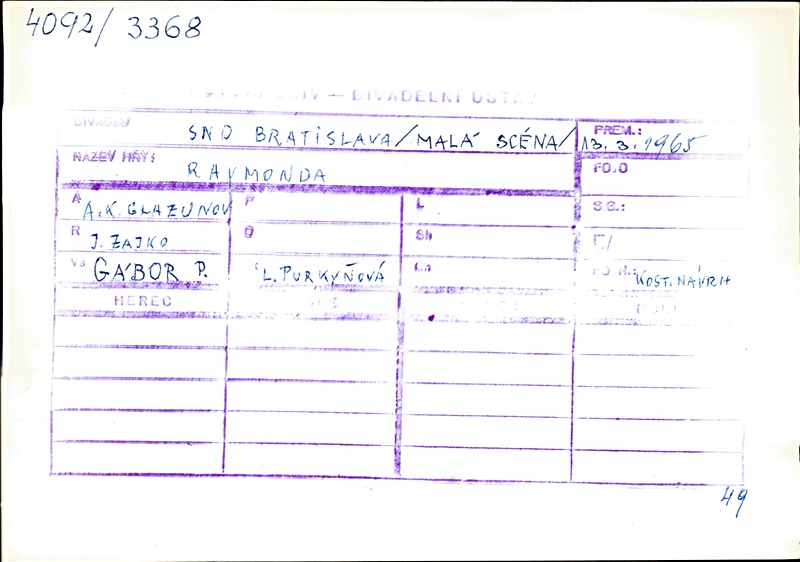 4092/ 3368
— DIVADELNÍ ÚSTAV
DIVADLO SND BRATISLAVA/MALÁ SCÉNA/ PREM.: 13. 3. 1965
NÁZEV HRY: RAYMONDA FOTO
A A.K. GLAZUNOV P L S.G.:
R J. ZAJKO D Sb
Vs GÁBOR P. L. PURKYŇOVÁ KOST. NÁVRH
HEREC
49